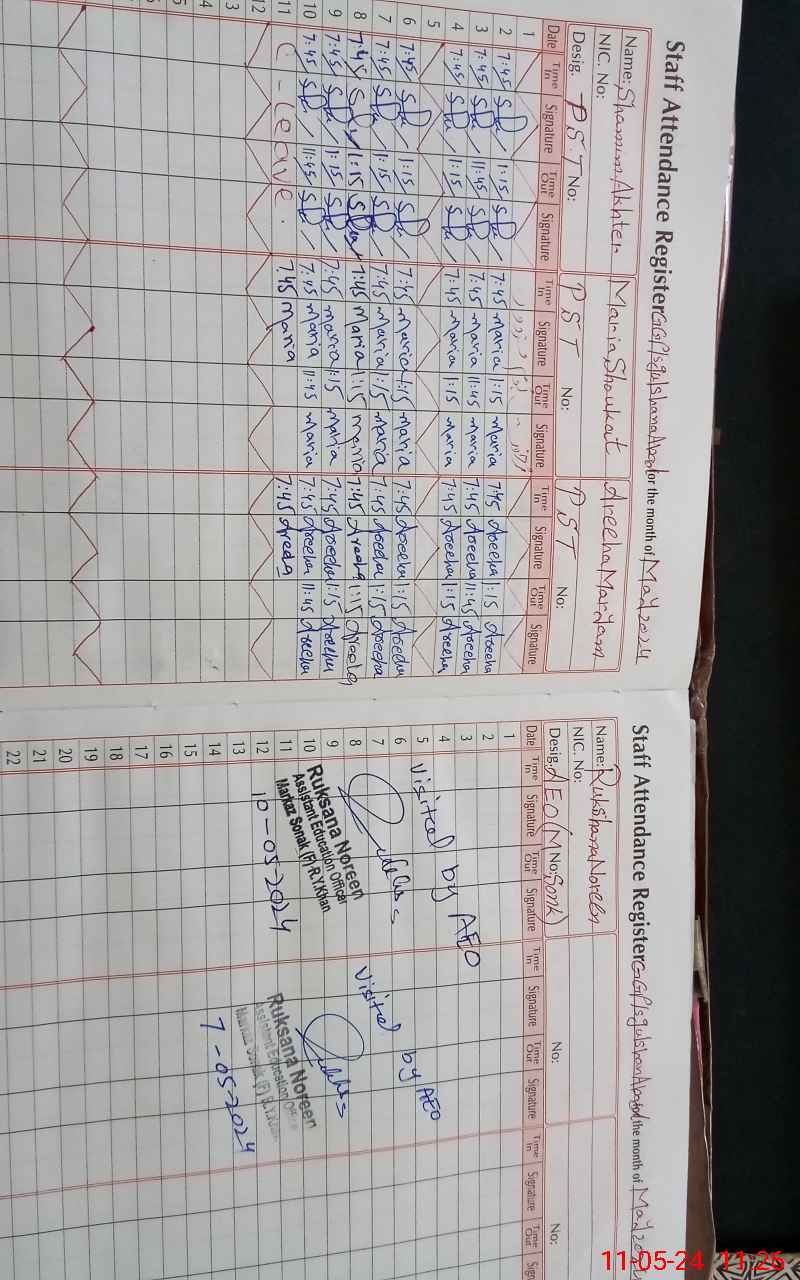 Staff Attendance Register for the month of May 2024
Name: Shamim Akhter Maria Shaukat Areeha Maryam
NIC. No:
Desig. P.S.T No: P S T No: P S T No:
Date Time In Signature Time Out Signature Time In Signature Time Out Signature Time In Signature Time Out Signature
1
2 7:45 1:15 7:45 Maria 1:15 Maria 7:45 Areeha 1:15 Areeha
3 7:45 11:45 7:45 Maria 11:45 Maria 7:45 Areeha 11:45 Areeha
4 7:45 1:15 7:45 Maria 1:15 Maria 7:45 Areeha 1:15 Areeha
5
6 7:45 1:15 7:45 Maria 1:15 Maria 7:45 Areeha 1:15 Areeha
7 7:45 1:15 7:45 Maria 1:15 Maria 7:45 Areeha 1:15 Areeha
8 7:45 1:15 7:45 Maria 1:15 Maria 7:45 Areeha 1:15 Areeha
9 7:45 1:15 7:45 Maria 1:15 Maria 7:45 Areeha 1:15 Areeha
10 7:45 11:45 7:45 Maria 11:45 Maria 7:45 Areeha 11:45 Areeha
11 C-leave. 7:45 Maria 7:45 Areeha
12
3
4
5
Staff Attendance Register the month of May 2024
Name: Rukhsana Noreen
NIC. No:
Desig: AEO (M No: Sonk) No: No:
Date Time In Signature Time Out Signature Time In Signature Time Out Signature Time In Signature Time Out Signature
1
2
3
4
5
6
7
8
9
10
11
12
13
14
15
16
17
18
19
20
21
22
Visited by AEO
Ruksana Noreen
Assistant Education Officer
Markaz Sonak (F) R.Y.Khan
10-05-2024
Visited by AEO
Ruksana Noreen
Assistant Education Officer
Markaz Sonak (F) R.Y.Khan
7-05-2024
11-05-24 11:26